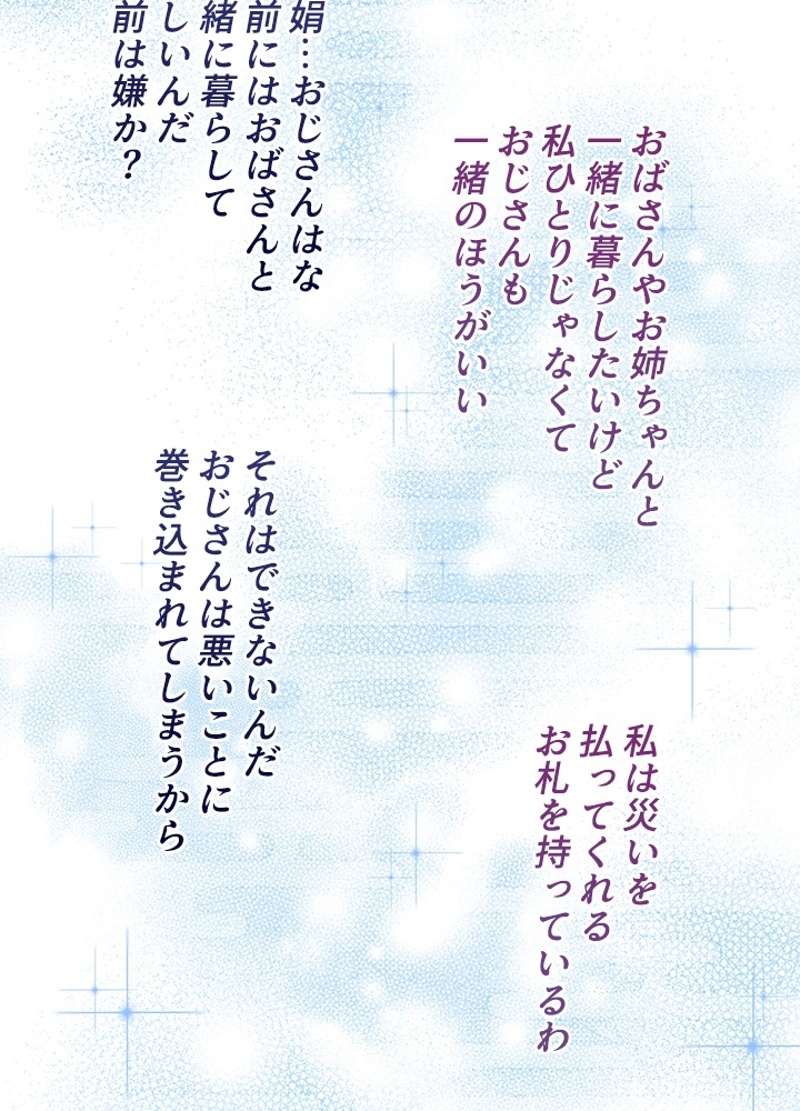 娟…おじさんはな
前にはおばさんと
緒に暮らして
しいんだ
前は嫌か？
おばさんやお姉ちゃんと
一緒に暮らしたいけど
私ひとりじゃなくて
おじさんも
一緒のほうがいい
それはできないんだ
おじさんは悪いことに
巻き込まれてしまうから
私は災いを
払ってくれる
お札を持っているわ